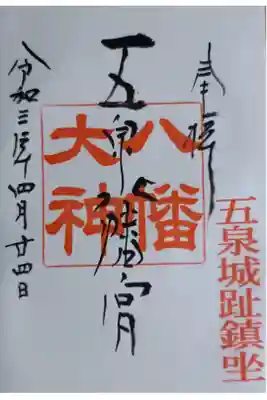 奉拝
五泉城趾鎮坐
五泉八幡宮
八幡大神
令和三年四月廿四日